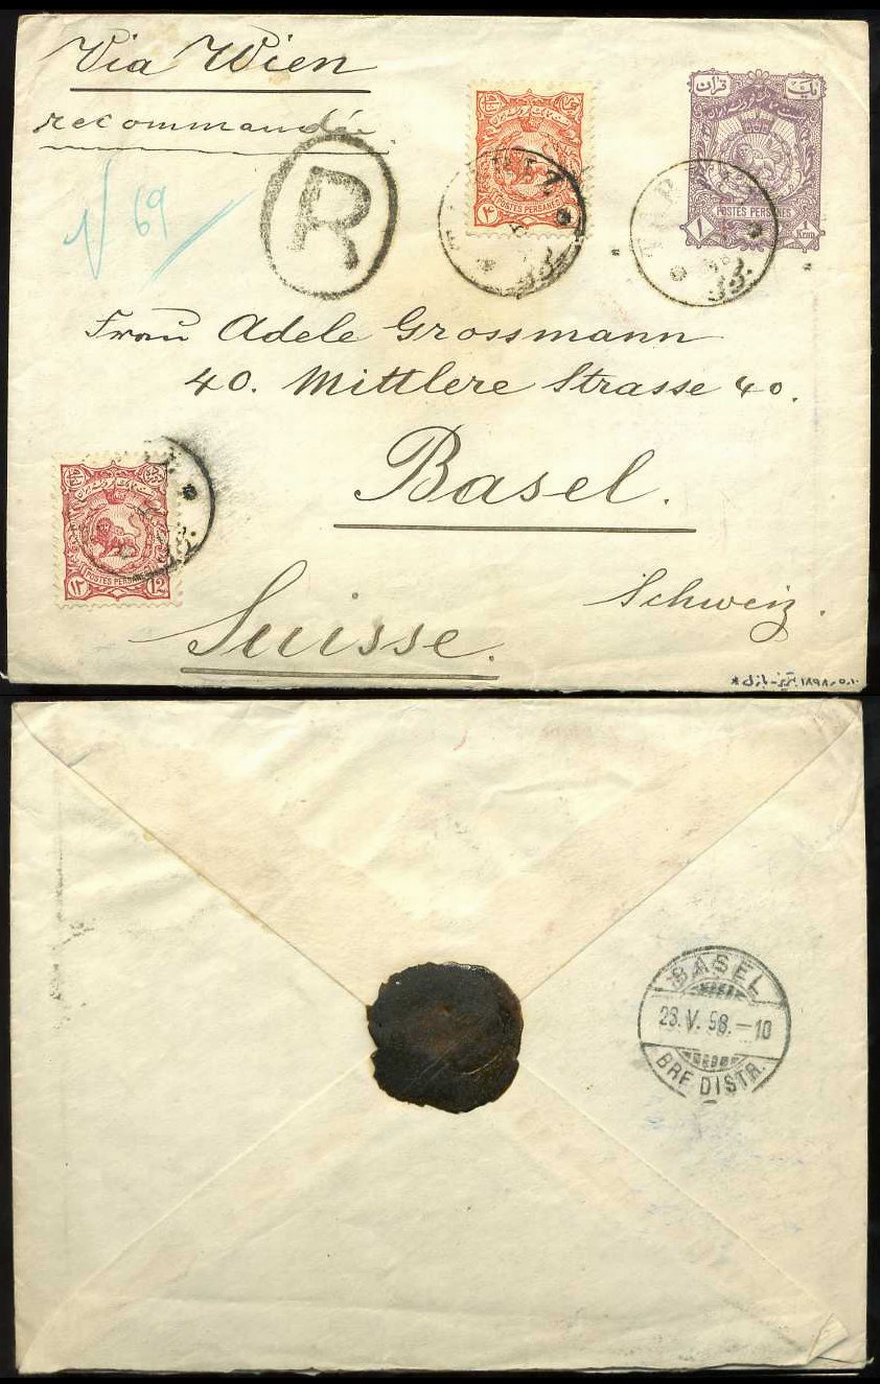 Via Wien
recommandée
N 69
R
یک قران
POSTES PERSANES
۱ 1
Kran
POSTES PERSANES
۳
Frau Adele Grossmann
40. Mittlere Strasse 40.
Basel.
POSTES PERSANES
۱۲ 12
Suisse.
Schweiz.
BASEL
23. V. 98. – 10
BRF. DISTR.